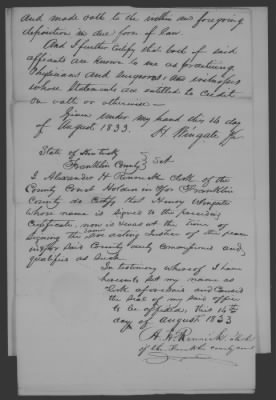 and made oath to the within and foregoing
deposition in due form of law.
And I further Certify that both of said
affiants are known to me as practicing
Physicians and Surgeons & are witnesses
whose Statements are entitled to credit
on oath or otherwise —
Given under my hand this 14 day
of August 1833. H Wingate Jp
State of Kentucky
Franklin County } Sct
I Alexander H Rennick Clerk of the
County Court Holden in & for Franklin
County do Certify that Henry Wingate
whose name is signed to the preceding
Certificate, now is & was at the time of
signing the same an acting Justice of the peace
in & for said County duly commissioned and
qualified as such
In testimony whereof I have
hereunto set my name as
Clerk aforesaid and Caused
the seal of my said office
to be affixed, this 14th
day of August 1833
A. H. Rennick Clerk
of the Franklin county court